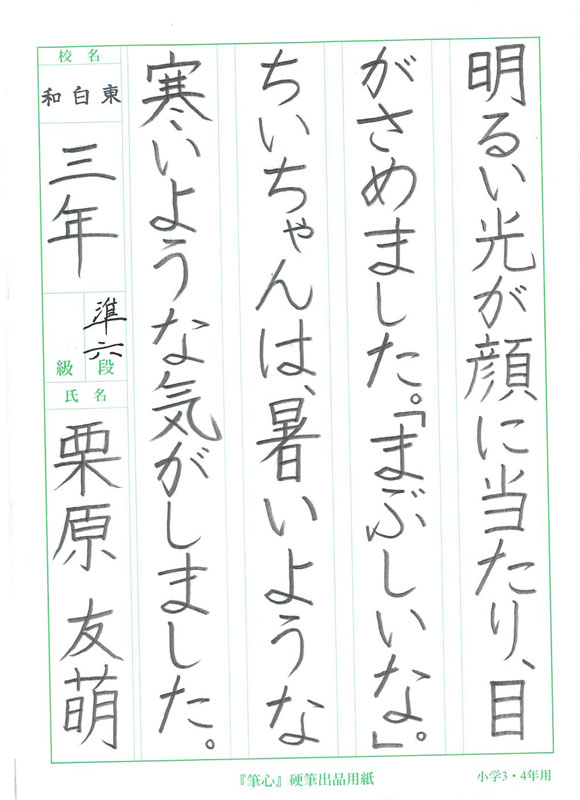 明るい光が顔に当たり、目
がさめました。「まぶしいな」。
ちいちゃんは、暑いような
寒いような気がしました。
校名
東白和
三年
準六
段
級
氏名
栗原 友萌
『筆心』硬筆出品用紙
小学3・4年用